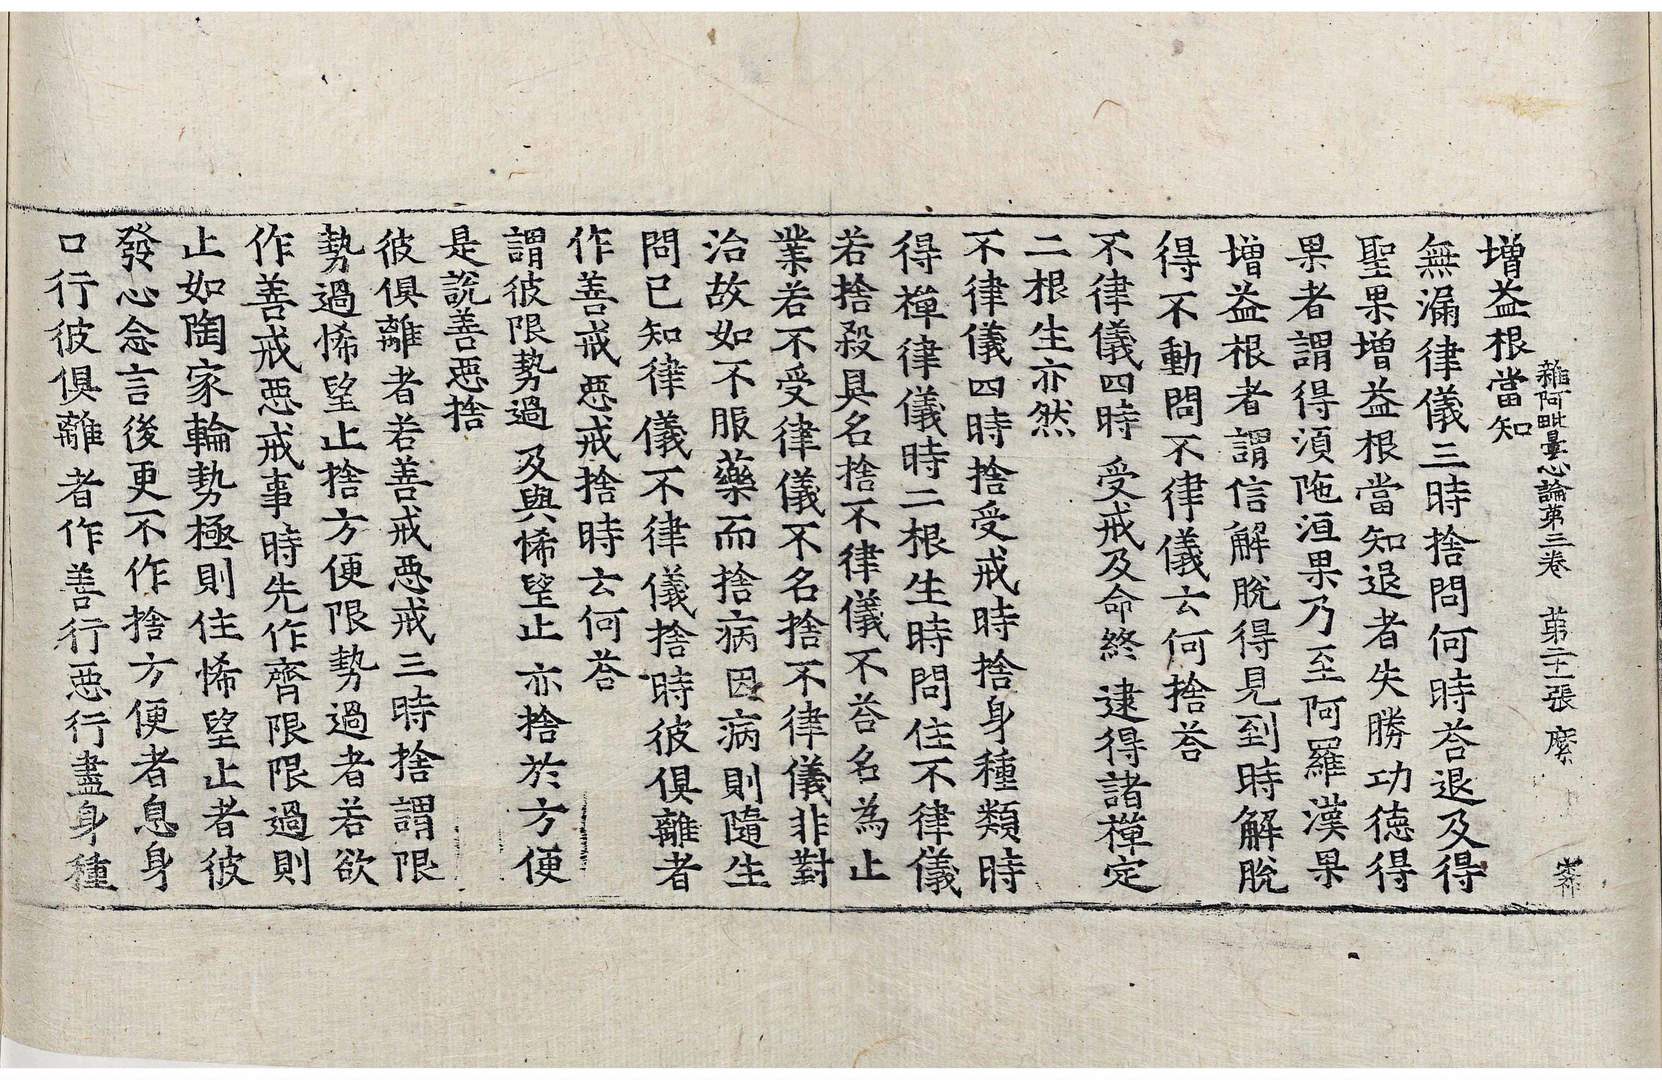 雜阿毗曇心論第三卷　第二十一張　縻
增益根當知
無漏律儀三時捨問何時荅退及得
聖果增益根當知退者失勝功德得
果者謂得湏陁洹果乃至阿羅漢果
增益根者謂信解脫得見到時解脫
得不動問不律儀云何捨荅
不律儀四時　受戒及命終　逮得諸禪定
二根生亦然
不律儀四時捨受戒時捨身種類時
得禪律儀時二根生時問住不律儀
若捨殺具名捨不律儀不荅名為止
業若不受律儀不名捨不律儀非對
治故如不服藥而捨病因病則隨生
問已知律儀不律儀捨時彼俱離者
作善戒惡戒捨時云何荅
謂彼限勢過　及與悕望止　亦捨於方便
是說善惡捨
彼俱離者若善戒惡戒三時捨謂限
勢過悕望止捨方便限勢過者若欲
作善戒惡戒事時先作齊限限過則
止如陶家輪勢極則住悕望止者彼
發心念言後更不作捨方便者息身
口行彼俱離者作善行惡行盡身種